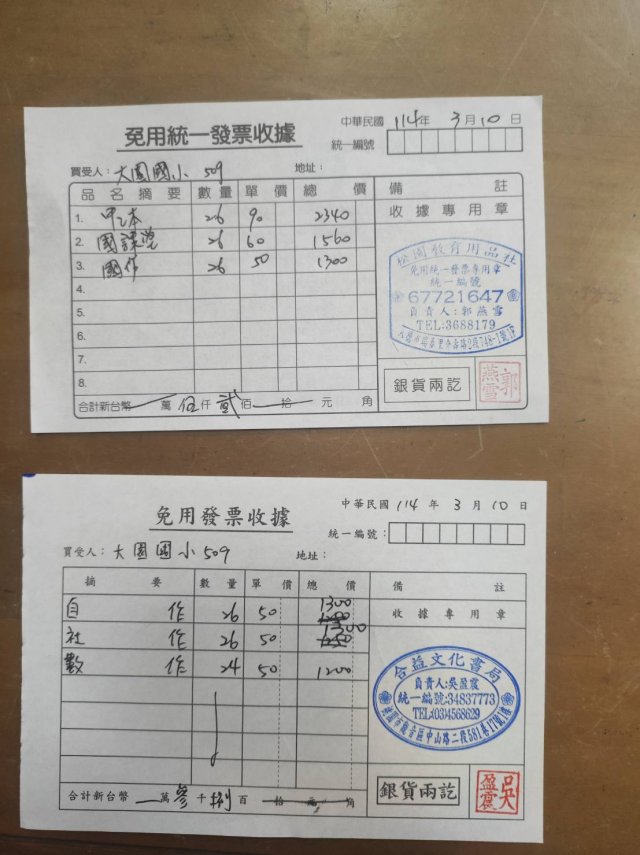 免用統一發票收據
中華民國 114年 3月10日
統一編號
買受人：大園國小 509 地址：
品名摘要 數量 單價 總價 備註
1. 甲乙本 26 90 2340 收據專用章
2. 國課學 26 60 1560
3. 國作 26 50 1300
4.
5.
6.
7.
8.
松園教育用品社
免用統一發票專用章
統一編號
67721647
負責人：郭燕雪
TEL:3688179
銀貨兩訖
郭燕雪
合計新台幣 萬伍仟貳佰 拾 元 角
免用發票收據
中華民國 114 年 3 月 10 日
統一編號：
買受人：大園國小 509 地址：
摘要 數量 單價 總價 備註
自作 26 50 1300 收據專用章
社作 26 50 1300
數作 24 50 1200
合益文化書局
負責人:吳盈震
統一編號:34837773
TEL:(03)4568629
桃園市觀音區中山路二段581巷17號1樓
銀貨兩訖
吳盈震
合計新台幣 萬參千捌百 拾 元 角